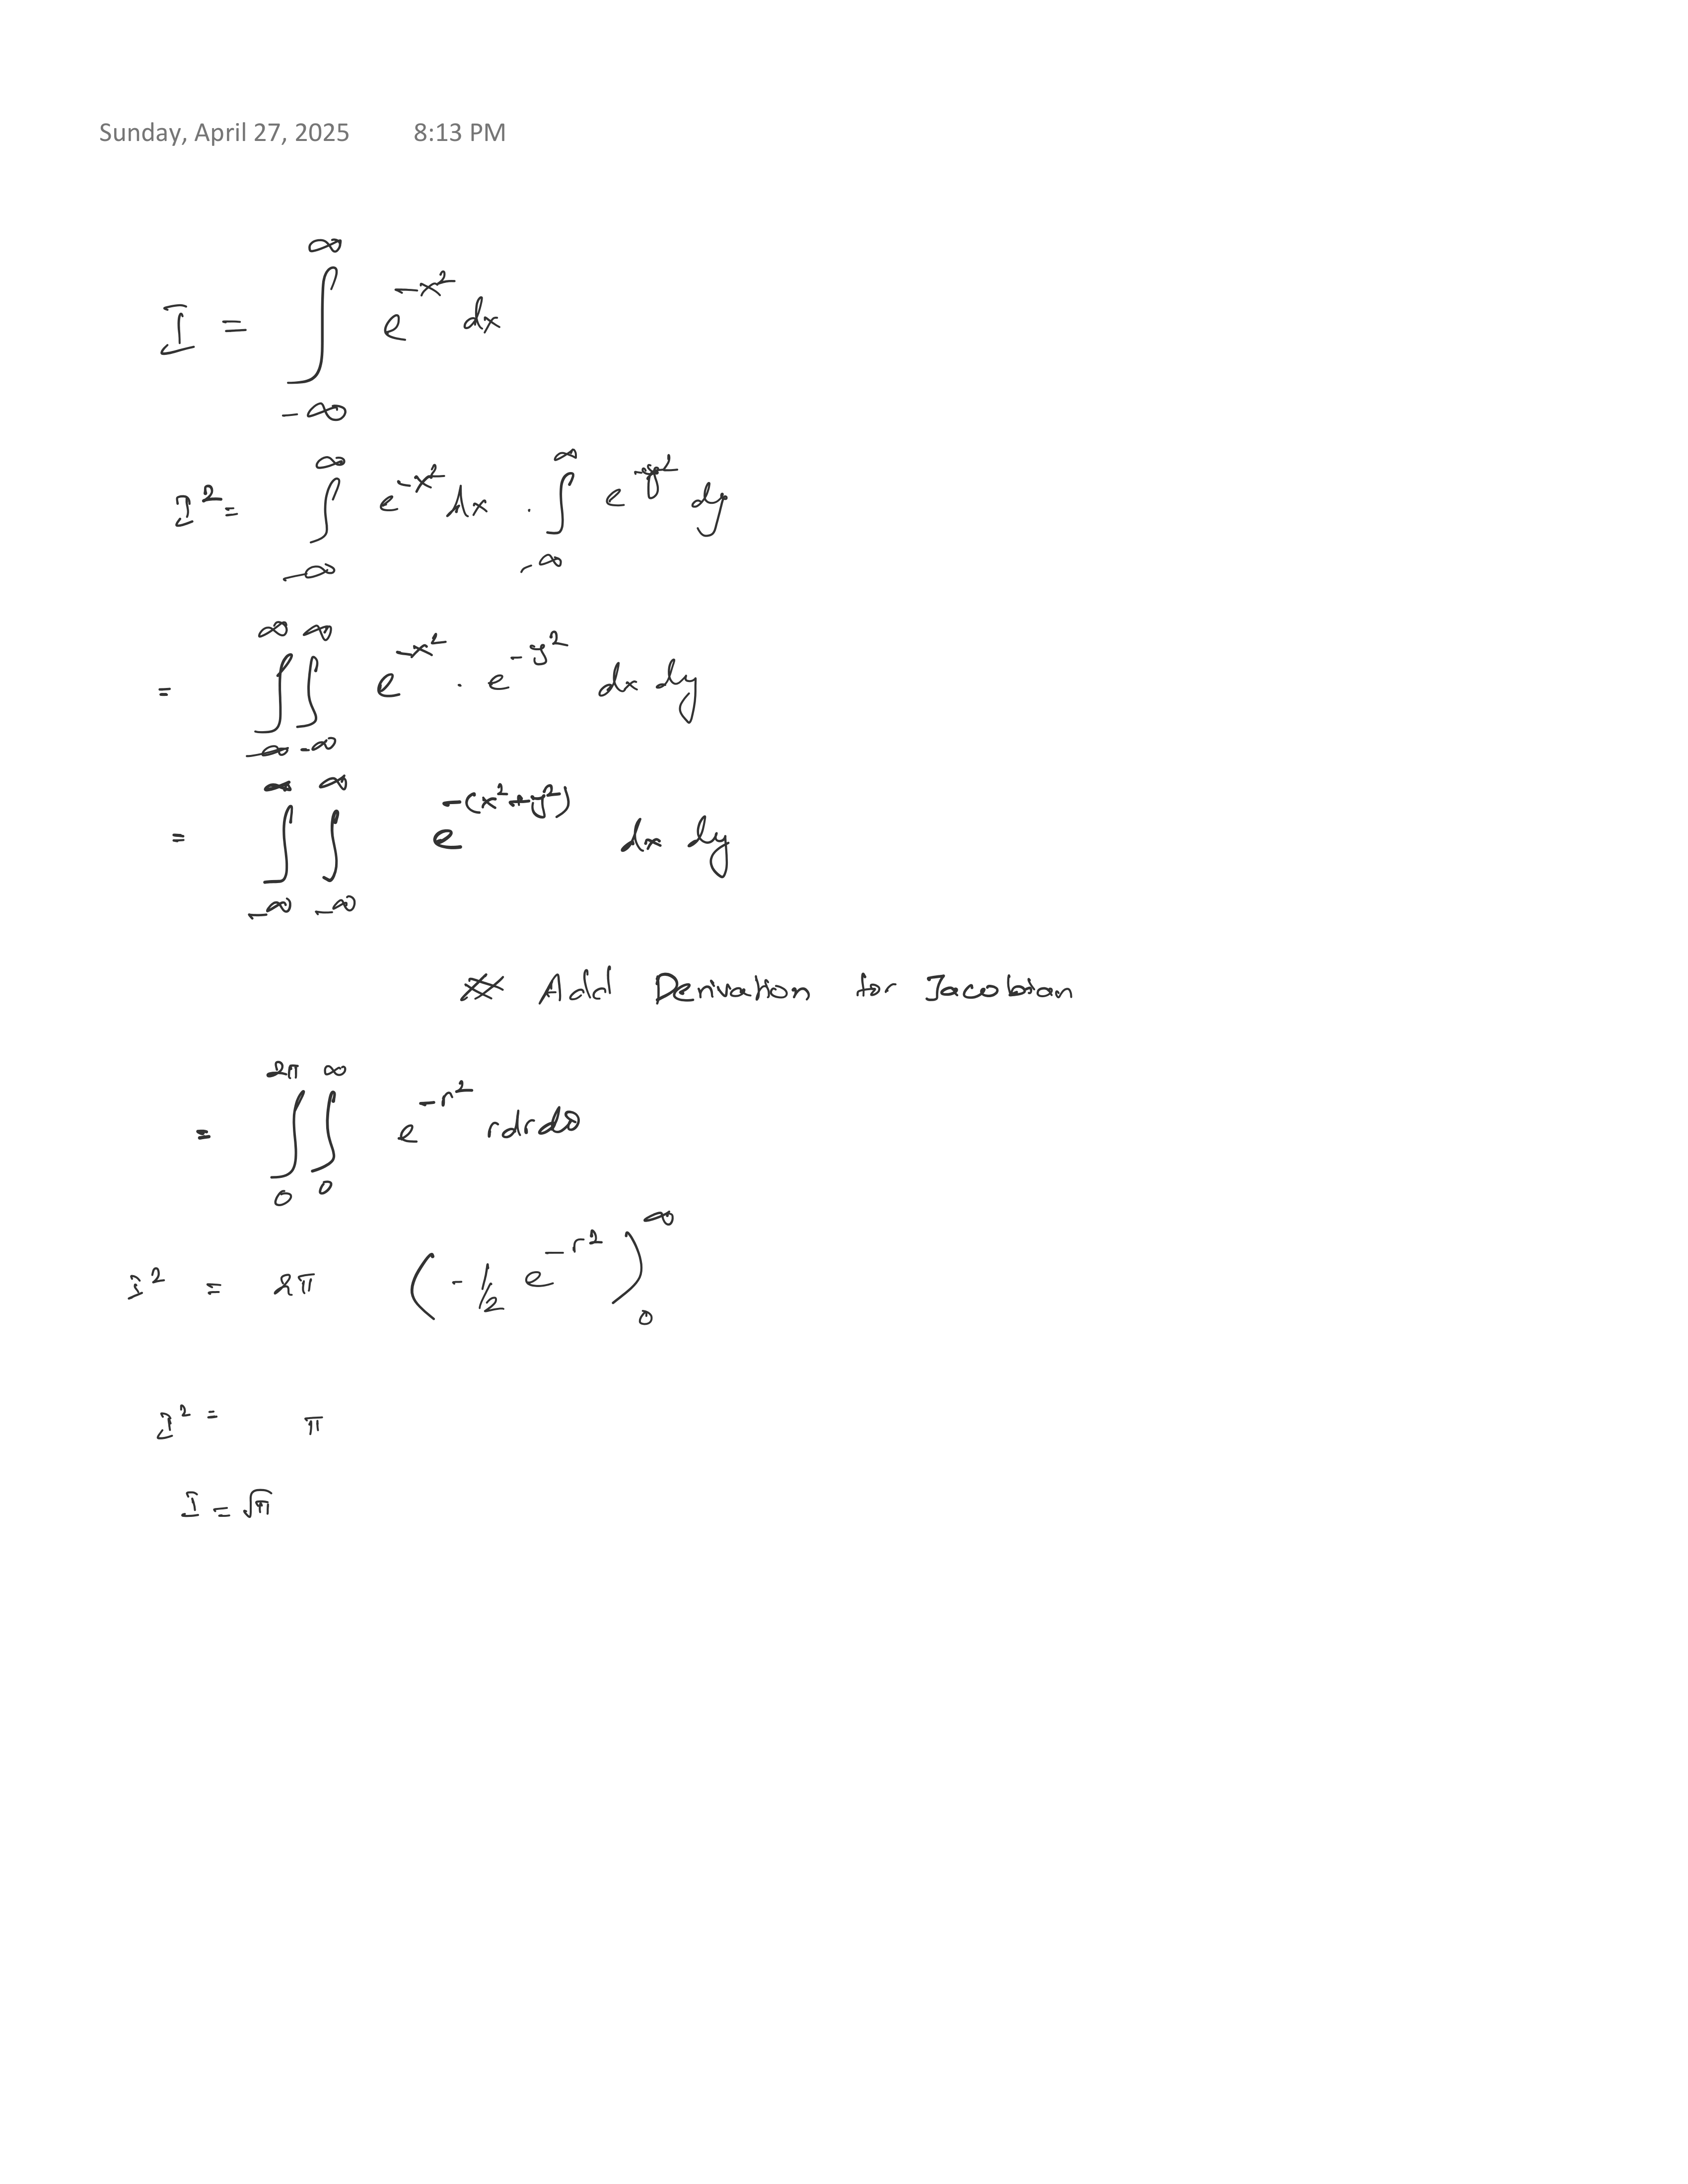 Sunday, April 27, 2025 8:13 PM
I = ∫_{-∞}^{∞} e^{-x²} dx
I² = ∫_{-∞}^{∞} e^{-x²} dx · ∫_{-∞}^{∞} e^{-y²} dy
= ∫_{-∞}^{∞} ∫_{-∞}^{∞} e^{-x²} · e^{-y²} dx dy
= ∫_{-∞}^{∞} ∫_{-∞}^{∞} e^{-(x²+y²)} dx dy
※ Add Derivation for Jacobian
= ∫_{0}^{2π} ∫_{0}^{∞} e^{-r²} r dr dθ
I² = 2π (-1/2 e^{-r²})_{0}^{∞}
I² = π
I = √π